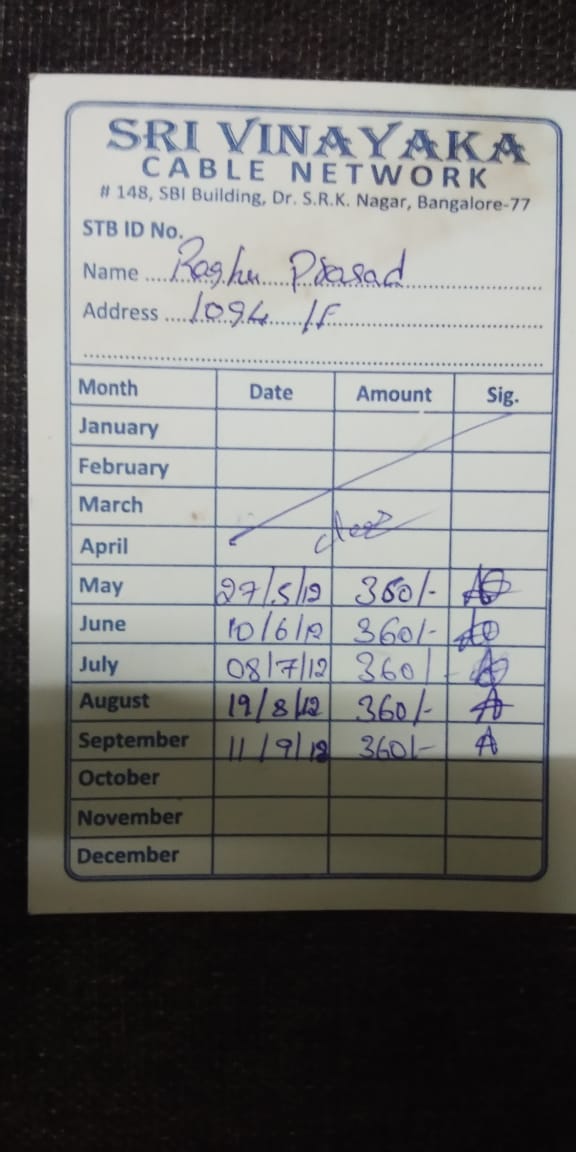 SRI VINAYAKA
CABLE NETWORK
# 148, SBI Building, Dr. S.R.K. Nagar, Bangalore-77
STB ID No.
Name Raghu Prasad
Address 1094 1F
Month Date Amount Sig.
January
February
March
April
May 27/5/19 360/-
June 10/6/19 360/-
July 08/7/19 360/-
August 19/8/19 360/-
September 11/9/19 360/-
October
November
December